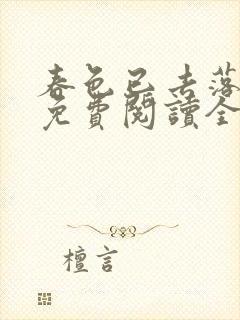 春色已去落
免費閱讀全
檀言